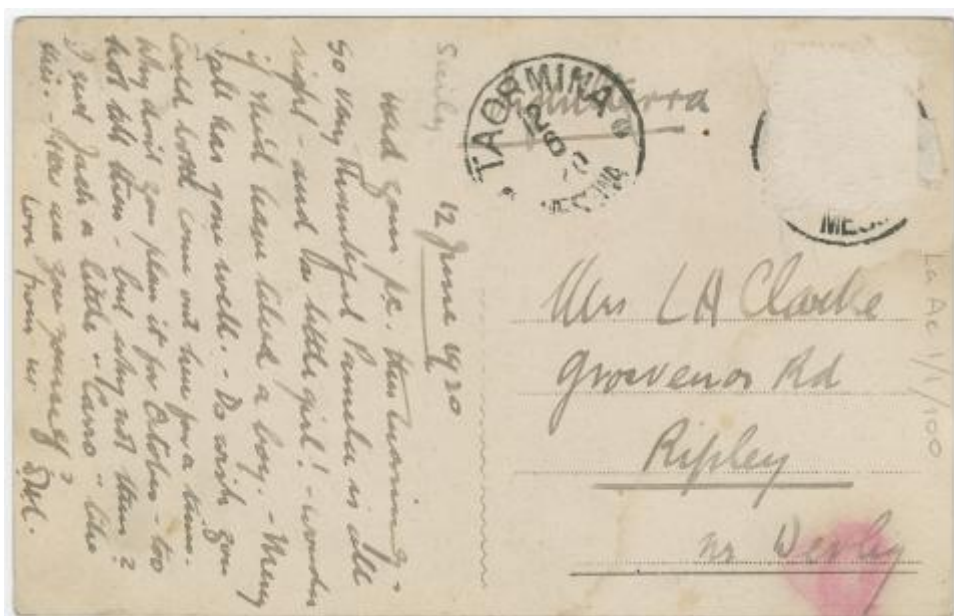 Sicily
12 June 1920
Had your p.c. this morning –
so very thankful Pamela is all
right – and has little girl! – wonder
if she'd have liked a boy. –
all has gone well. – Do wish you
could both come out here for a time.
Why don't you plan it for October – too
hot till then – but why not then?
I sent Jack a little "Carro" like
this. – How are you yourself?
Love from us DHL.
Inghilterra
TAORMINA
Mrs L H Clarke
Grosvenor Rd
Ripley
nr Derby
La Ac 1/1/100